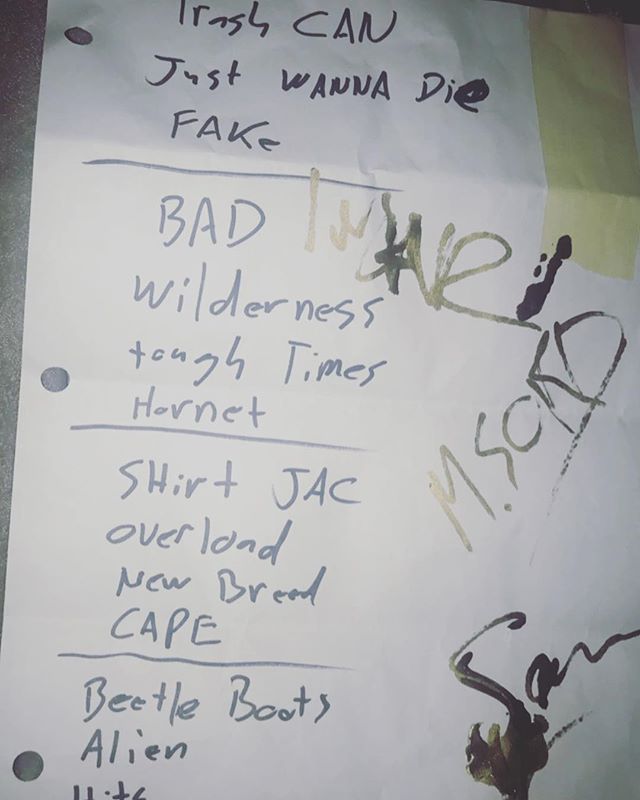 Trash CAN
Just WANNA Die
FAKe
BAD
Wilderness
tough Times
Hornet
SHirt JAC
overload
New Breed
CAPE
Beetle Boots
Alien
Hits
M.SORD
Sam